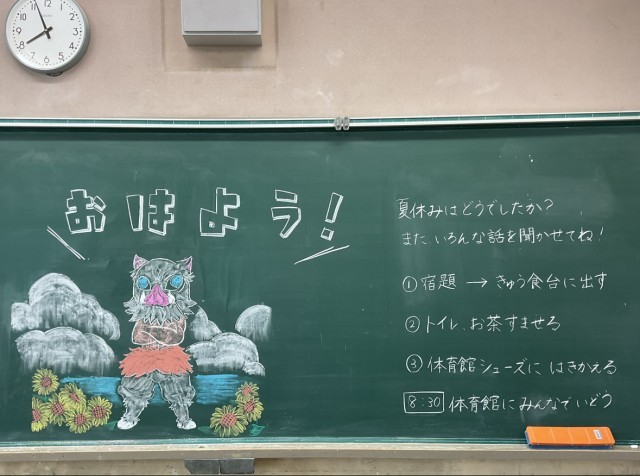 おはよう!
夏休みはどうでしたか?
また いろんな話を聞かせてね!
① 宿題 → きゅう食台に出す
② トイレ、お茶すませる
③ 体育館シューズに はきかえる
8:30 体育館にみんなでいどう